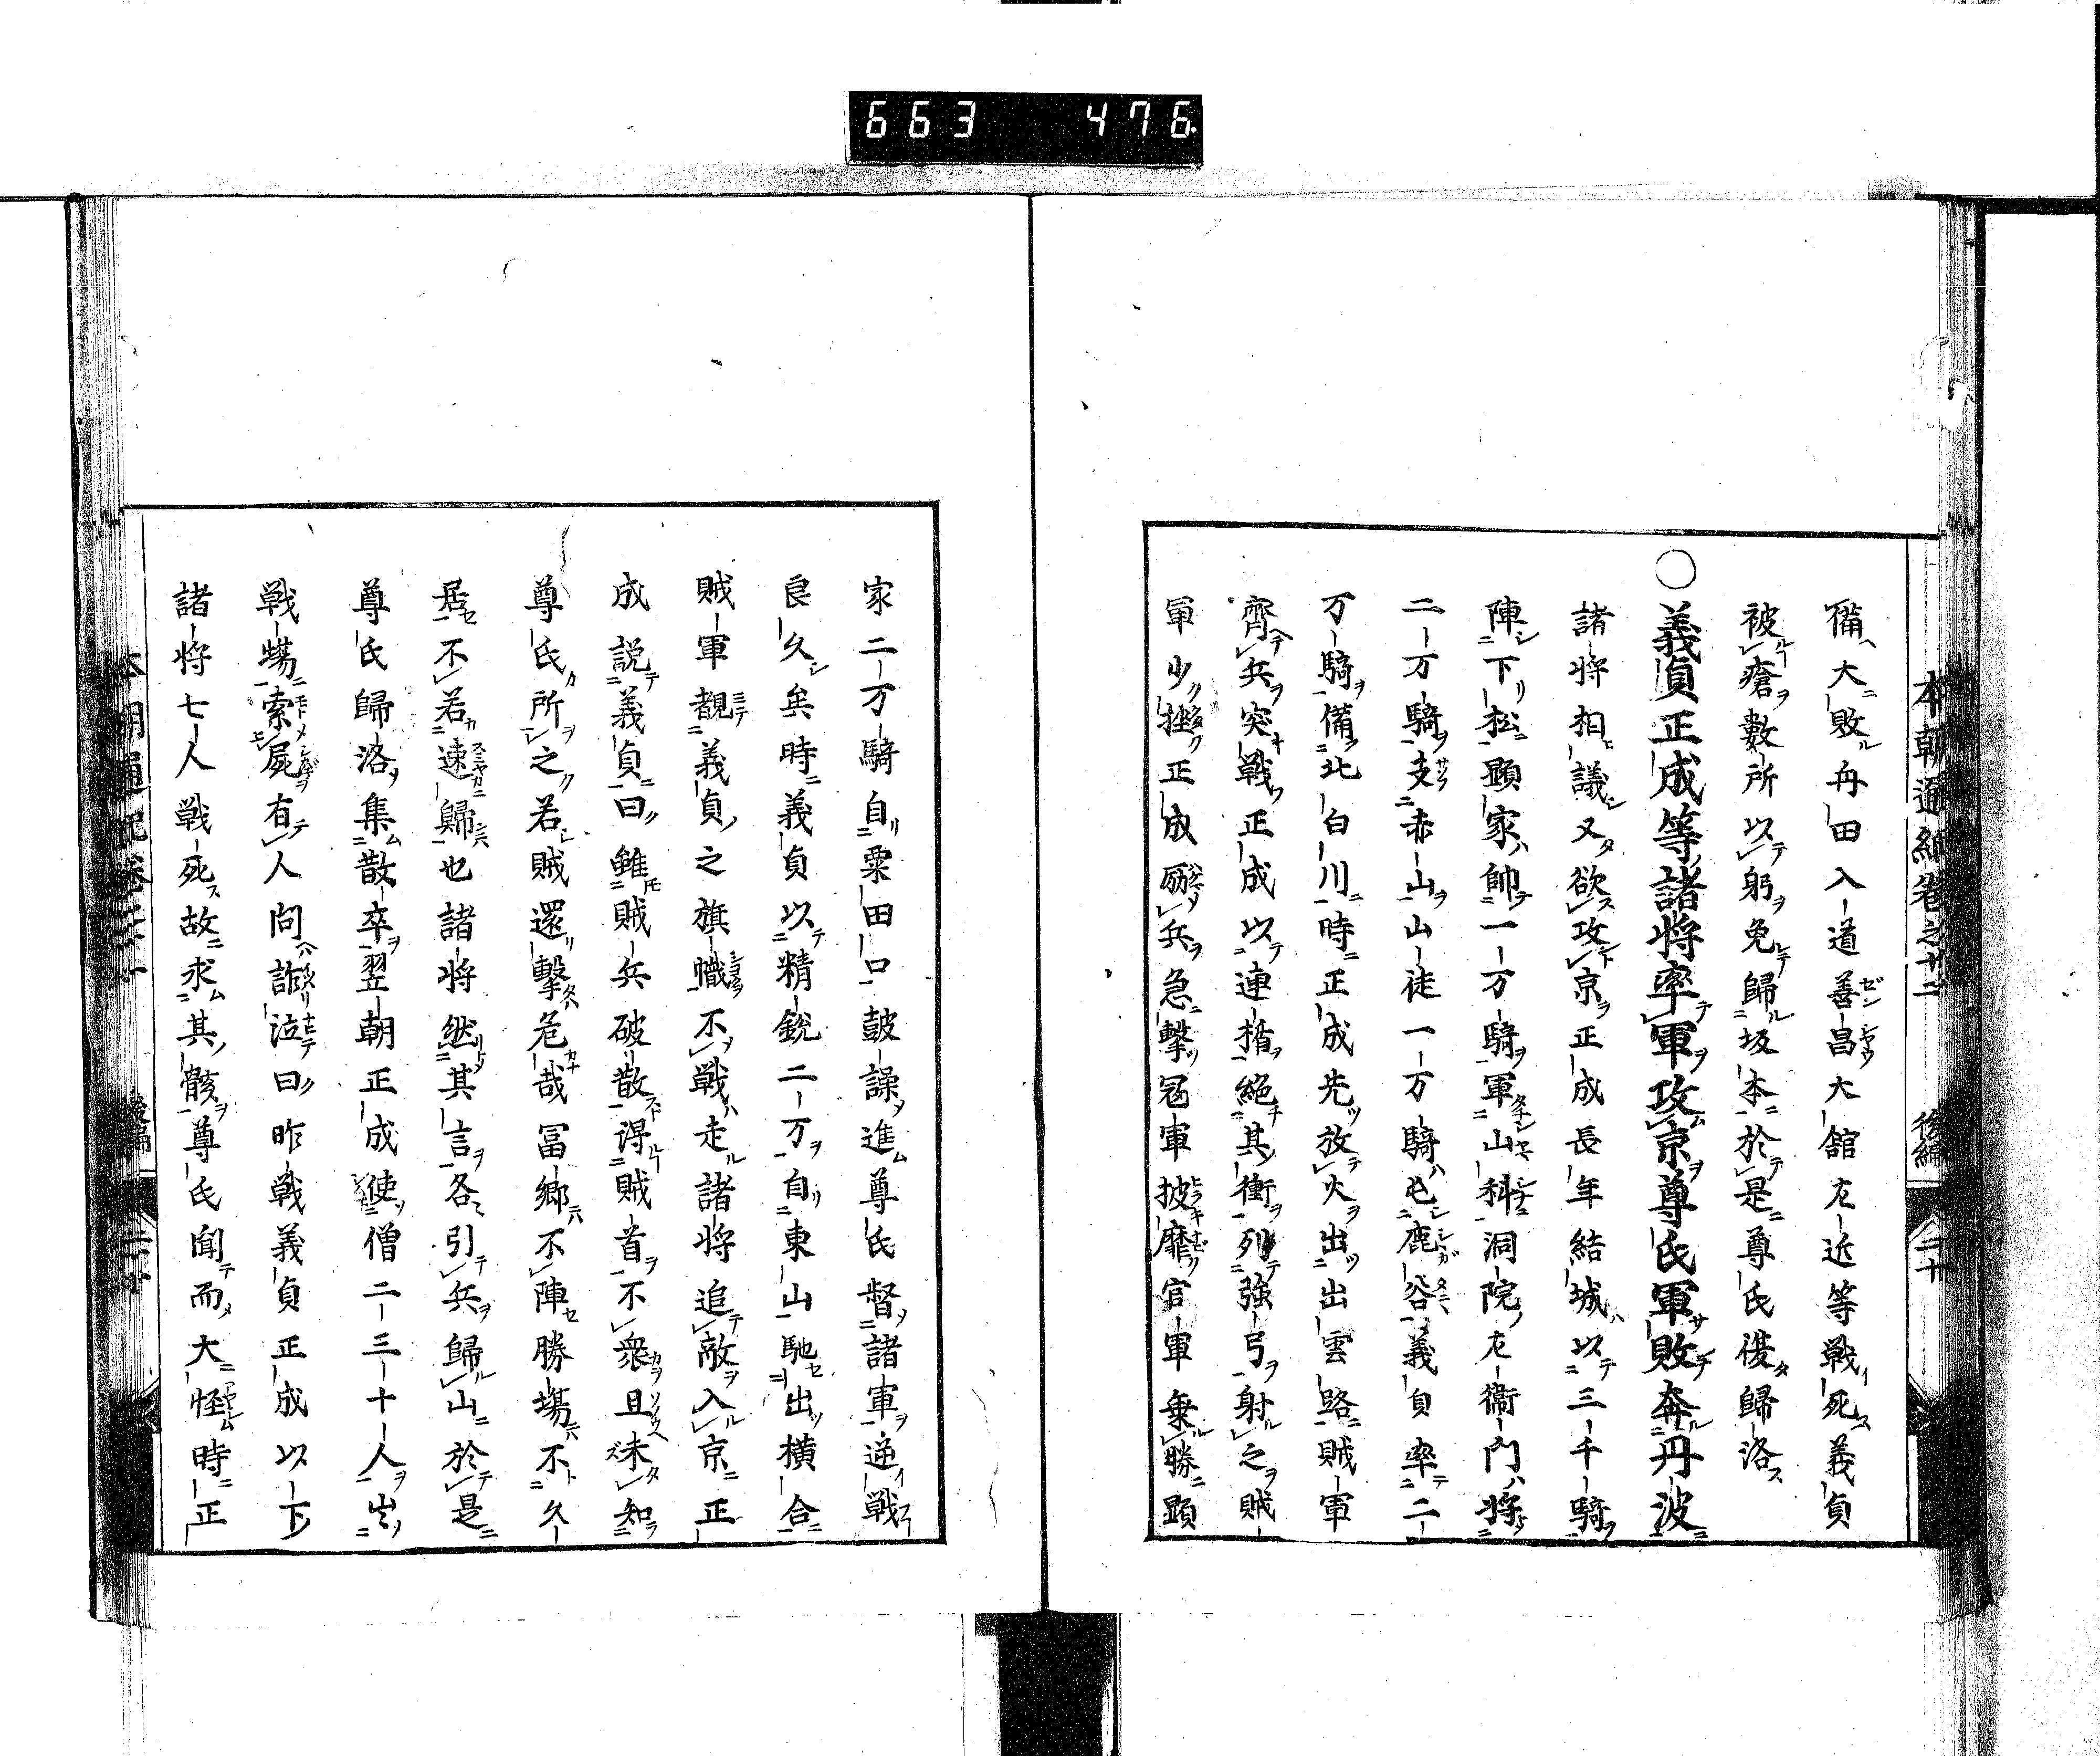 663 476
本朝通紀卷之廿二 後編 二十
備大敗舟田入道善昌大舘左近等戦死義貞
被瘡數所以躬免歸坂本於是尊氏復歸洛
○義貞正成等諸将率軍攻京尊氏軍敗奔丹波
諸将相議又欲攻京正成長年結城以三千騎
陣下松顕家帥一万騎軍山科洞院左衛門将
二万騎支赤山山徒一万騎屯鹿谷義貞率二
万騎備北白川時正成先放火出出雲路賊軍
齊兵突戦正成以連楯絶其衝列強弓射之賊
軍少挫正成励兵急撃冦軍披靡官軍乗勝顕
家二万騎自粟田口鼓譟進尊氏督諸軍逆戦
良久矣時義貞以精鋭二万自東山馳出横合
賊軍覩義貞之旗幟不戦走諸将追敵入京正
成説義貞曰雖賊兵破散得賊首不衆且未知
尊氏所之若賊還撃危哉冨郷不陣勝場不久
居不若速歸也諸将然其言各引兵歸山於是
尊氏歸洛集散卒翌朝正成使僧二三十人出
戦場索屍有人問詐泣曰昨戦義貞正成以下
諸将七人戦死故求其骸尊氏聞而大怪時正